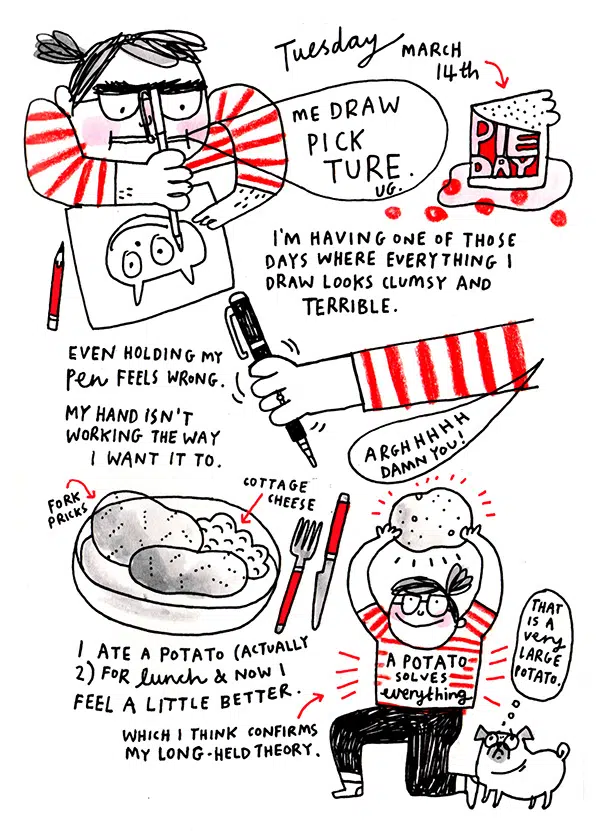 Tuesday
MARCH
14th
PIE
DAY
ME DRAW
PICK
TURE.
UG.
I'M HAVING ONE OF THOSE
DAYS WHERE EVERYTHING I
DRAW LOOKS CLUMSY AND
TERRIBLE.
EVEN HOLDING MY
Pen FEELS WRONG.
MY HAND ISN'T
WORKING THE WAY
I WANT IT TO.
ARGHHHHH
DAMN YOU!
FORK
PRICKS
COTTAGE
CHEESE
I ATE A POTATO (ACTUALLY
2) FOR lunch & NOW I
FEEL A LITTLE BETTER.
WHICH I THINK CONFIRMS
MY LONG-HELD THEORY.
A POTATO
SOLVES
everything
THAT
IS A
very
LARGE
POTATO.